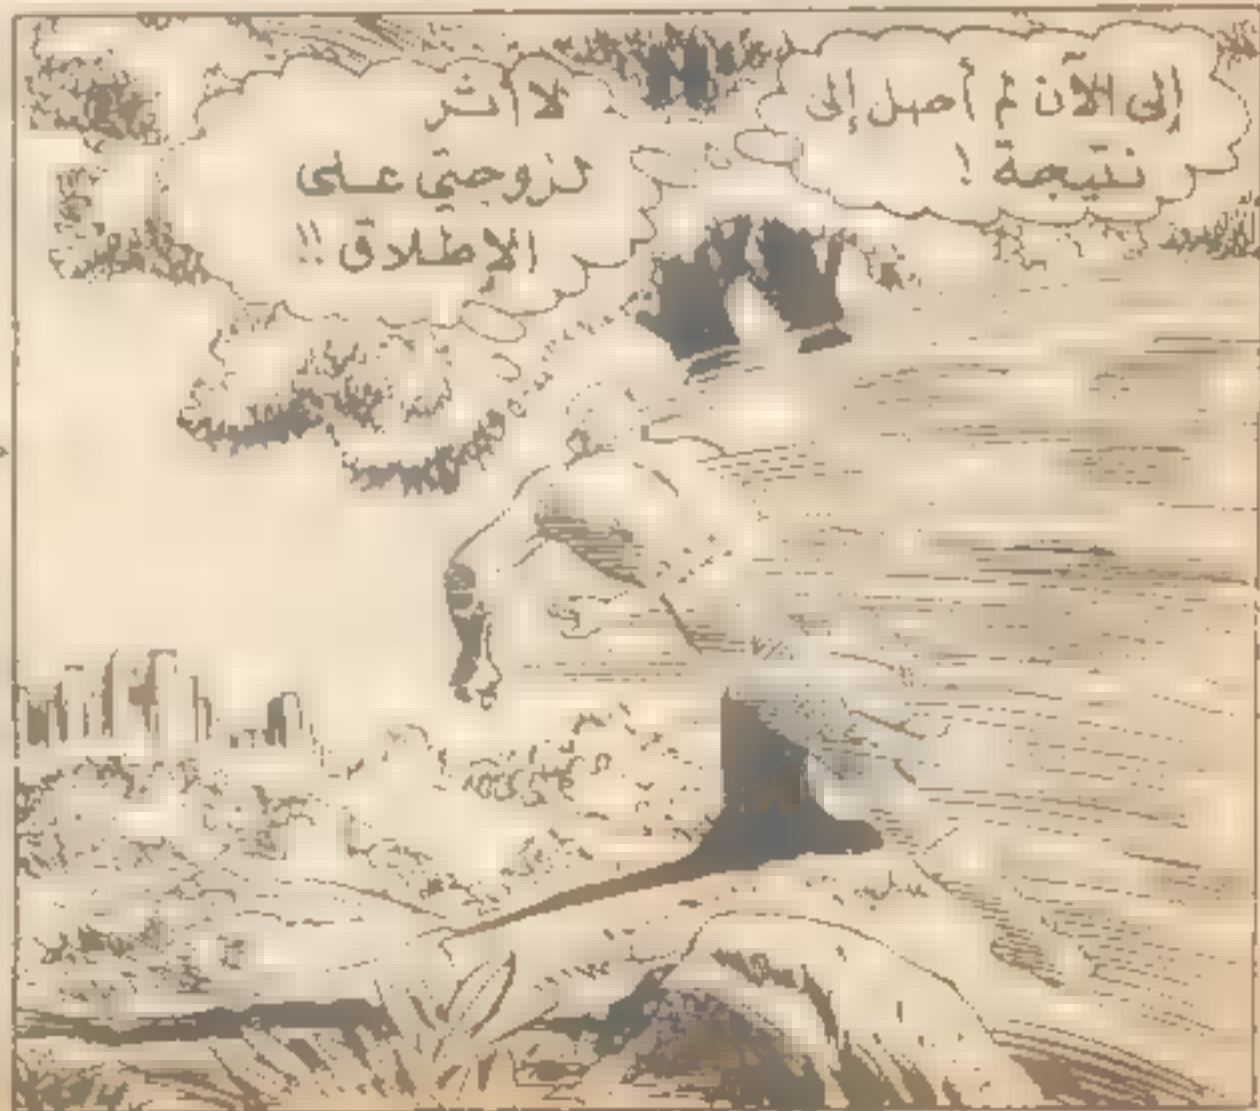 إلى الآن لم أصل إلى
نتيجة !
لا أثر
لزوجتي على
الإطلاق !!